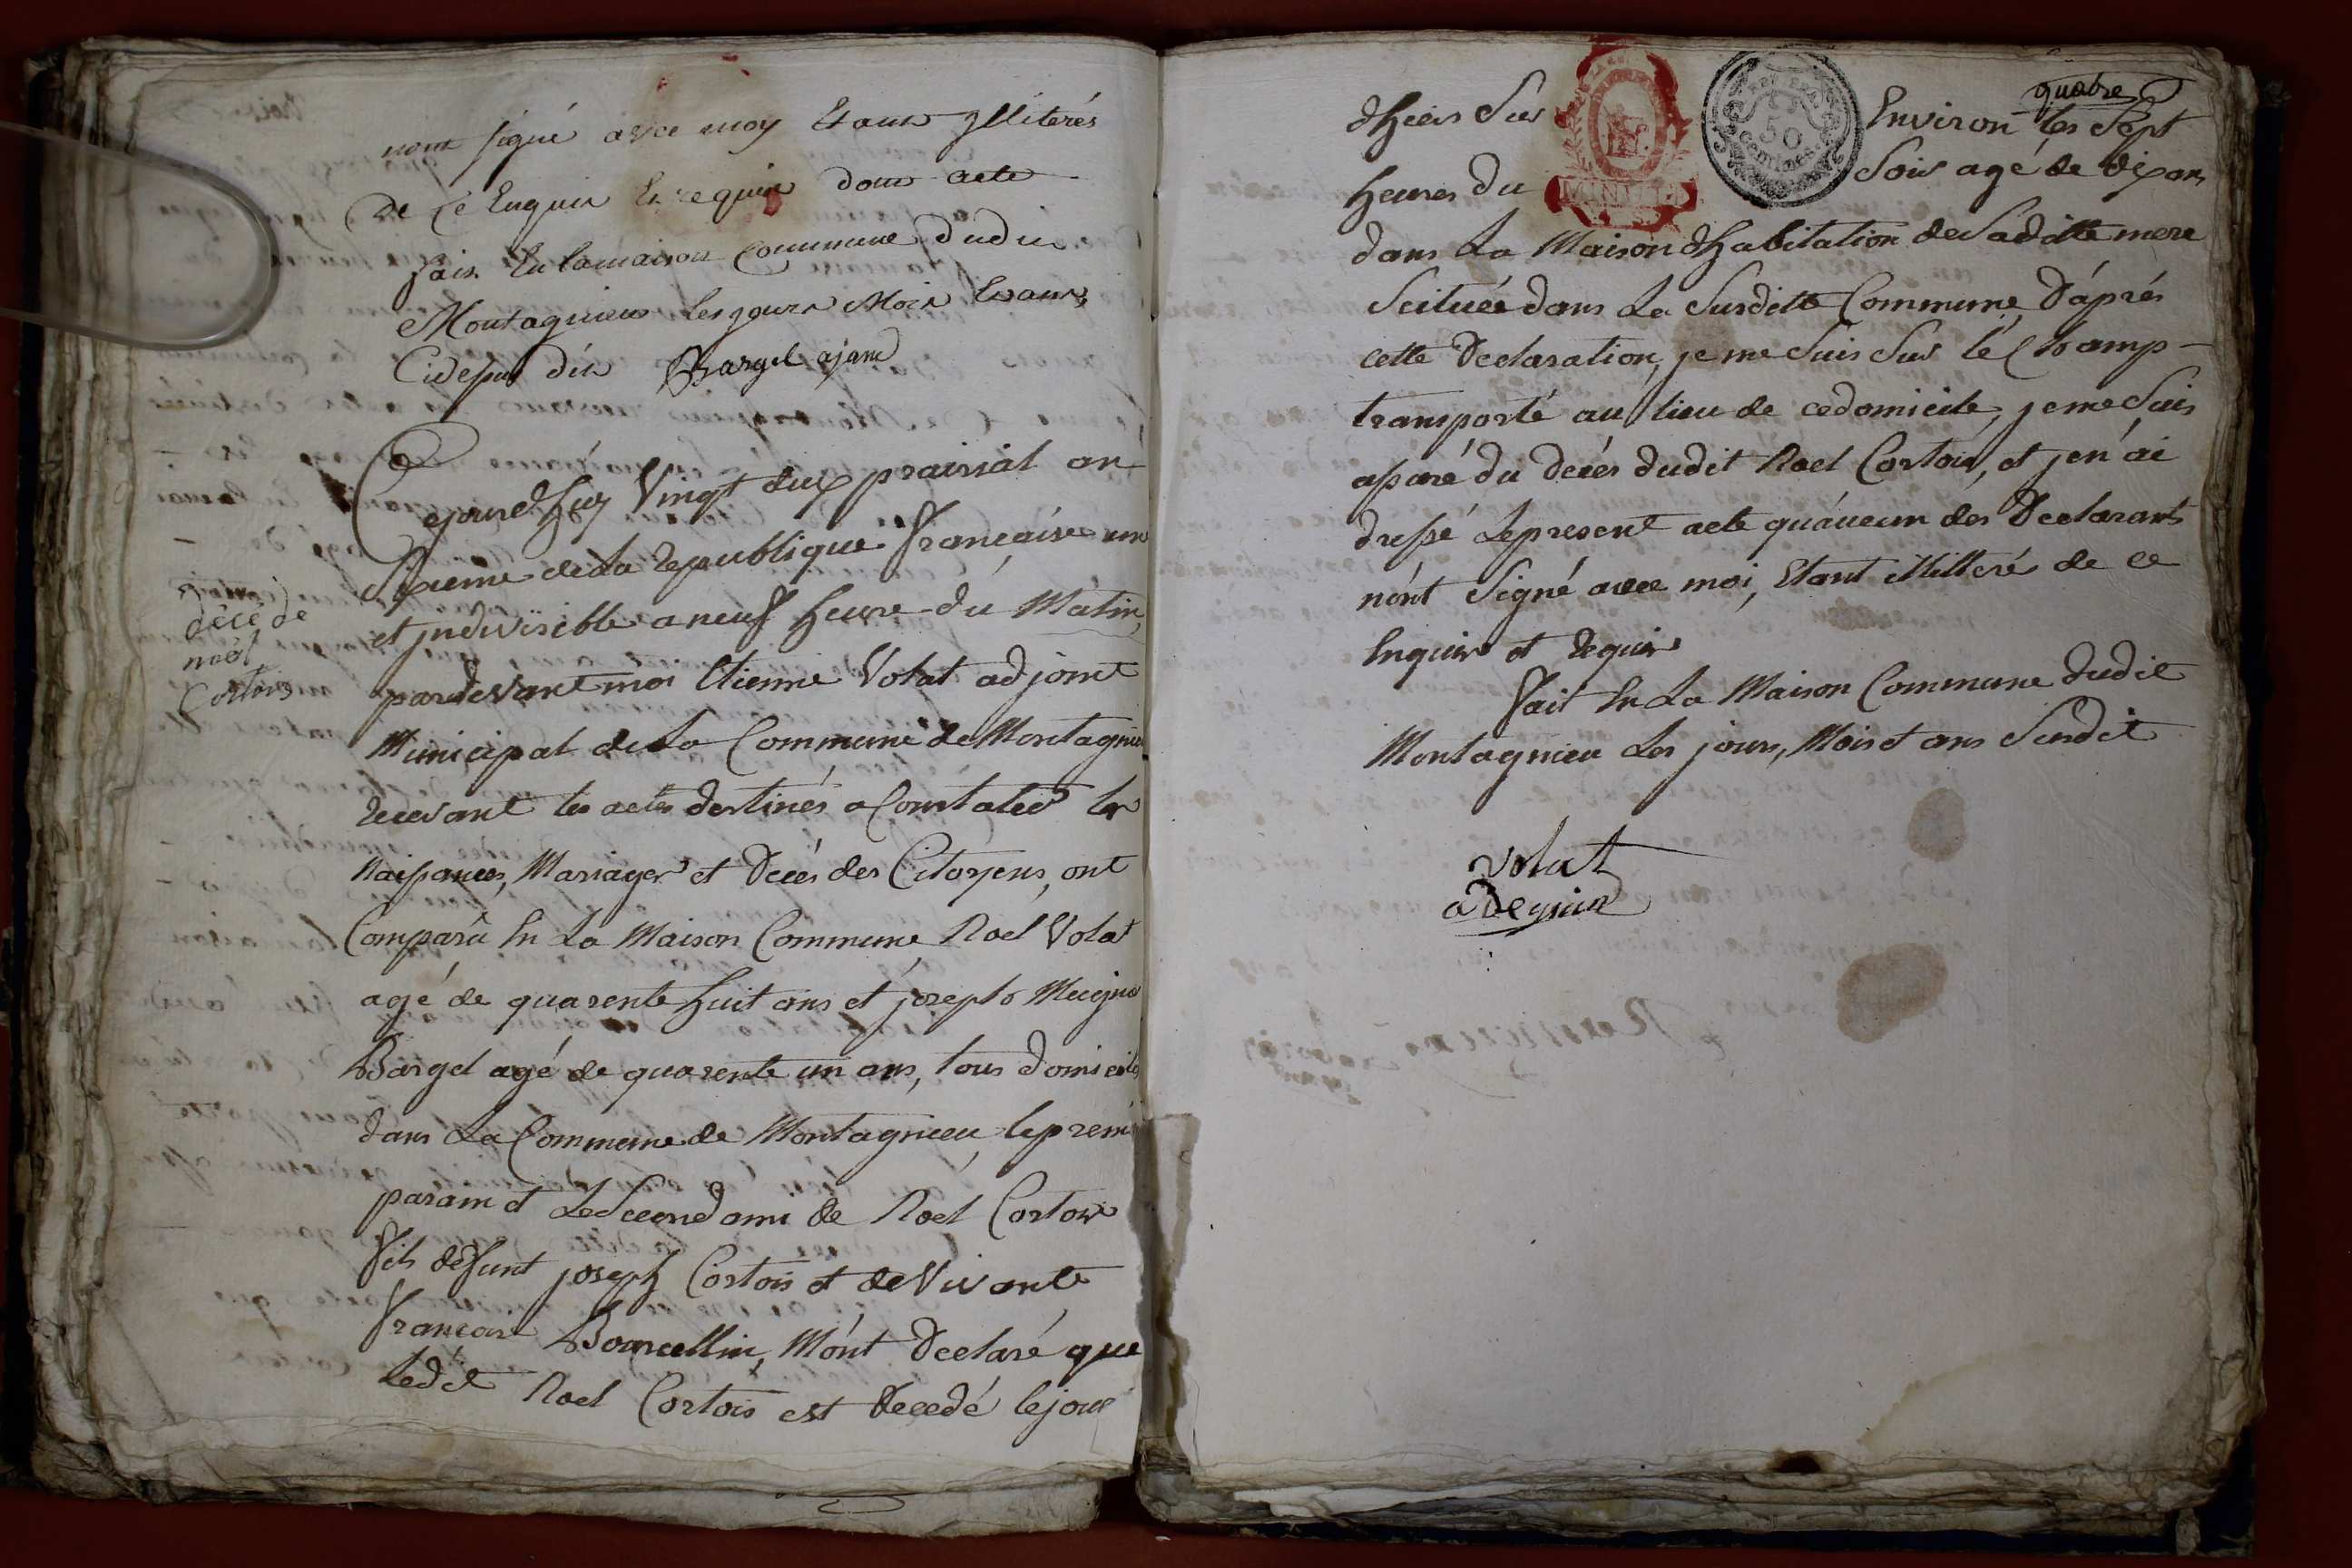 nont signé avec moy Etant yllitérés
De Ce Enquis Et requis dont acte
fait En la maison Commune dudit
Montagnieu les jours Mois Et ans
Cidepus dit Bargel ajoint
décè de
noël
Cortois
Cejourd'huy Vingt deux prairial an
Sixieme de La republique française une
et jndivisible a neuf heure du Matin,
pardevant moi Etienne Volat adjoint
Municipal de La Commune de Montagnieu
recevant les actes destinés a Constater les
Naissances, Mariages et Decés des Citoyens, ont
Comparû En La Maison Commune Noël Volat
agé de quarente huit ans et joseph
Bargel agé de quarente un ans, tous domiciliés
dans La Commune de Montagnieu, le premier
parain et Le Second ami de Noel Cortois
fils defunt joseph Cortois et de Vivante
françoise Bourcellin, M'ónt Declaré que
ledit Noel Cortois est Decedé le jour
quatre
d'hiers Sur Environ les Sept
heures du Soir agé de dix ans
MINUTE
REP. FRA.
50
centimes
dans La Maison d'habitation de Sa ditte mere
Scituée dans La Susditte Commune D'áprés
cette Declaration, je me Suis Sur lé Champ-
transporté au lieu de ce domicile, je me Suis
assuré du Decés dudit Noel Cortois, et j'en ai
dressé Le present acte qu'aucun des Declarants
n'ónt Signé avec moi, Etant illitteré de ce
Enquis et requis
Fait En La Maison Commune dudit
Montagnieu Les jours, Mois et ans Susdit
volat
adegoint